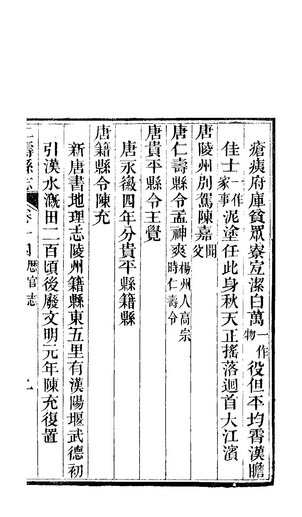 瘡痍府庫貧眾寮宜潔白萬一作物役但平均霄漢瞻
佳士一作家事泥塗任此身秋天正搖落迴首大江濱
唐陵州別駕陳嘉聞父
唐仁壽縣令孟神爽揚州人高宗時仁壽令
唐貴平縣令王覺
唐永徽四年分貴平縣籍縣
唐籍縣令陳充
新唐書地理志陵州籍縣東五里有漢陽堰武德初
引漢水溉田二百頃後廢文明元年陳充復置
仁壽縣志
歷官志